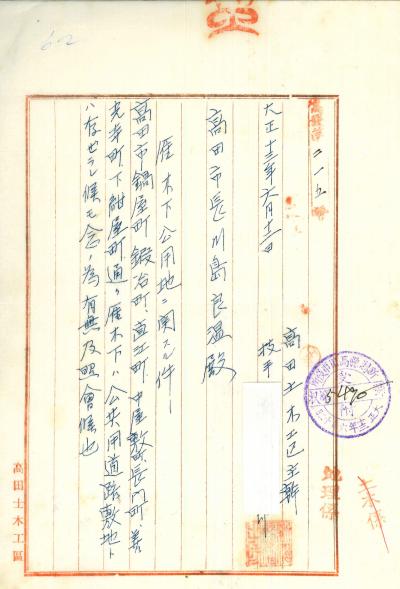 62
二一五
大正十三年六月十二日
高田土木工区主幹
技手
高田市長川島良温殿
雁木下公用地ニ関スル件
高田市鍋屋町、鍛冶町、直江町、中屋敷町、長門町、善
光寺町、下紺屋町通リ雁木下ハ公共用道路敷地ト
ハ存セラレ候モ念ノ為有無及照会候也
地理係
土木係
高田土木工區